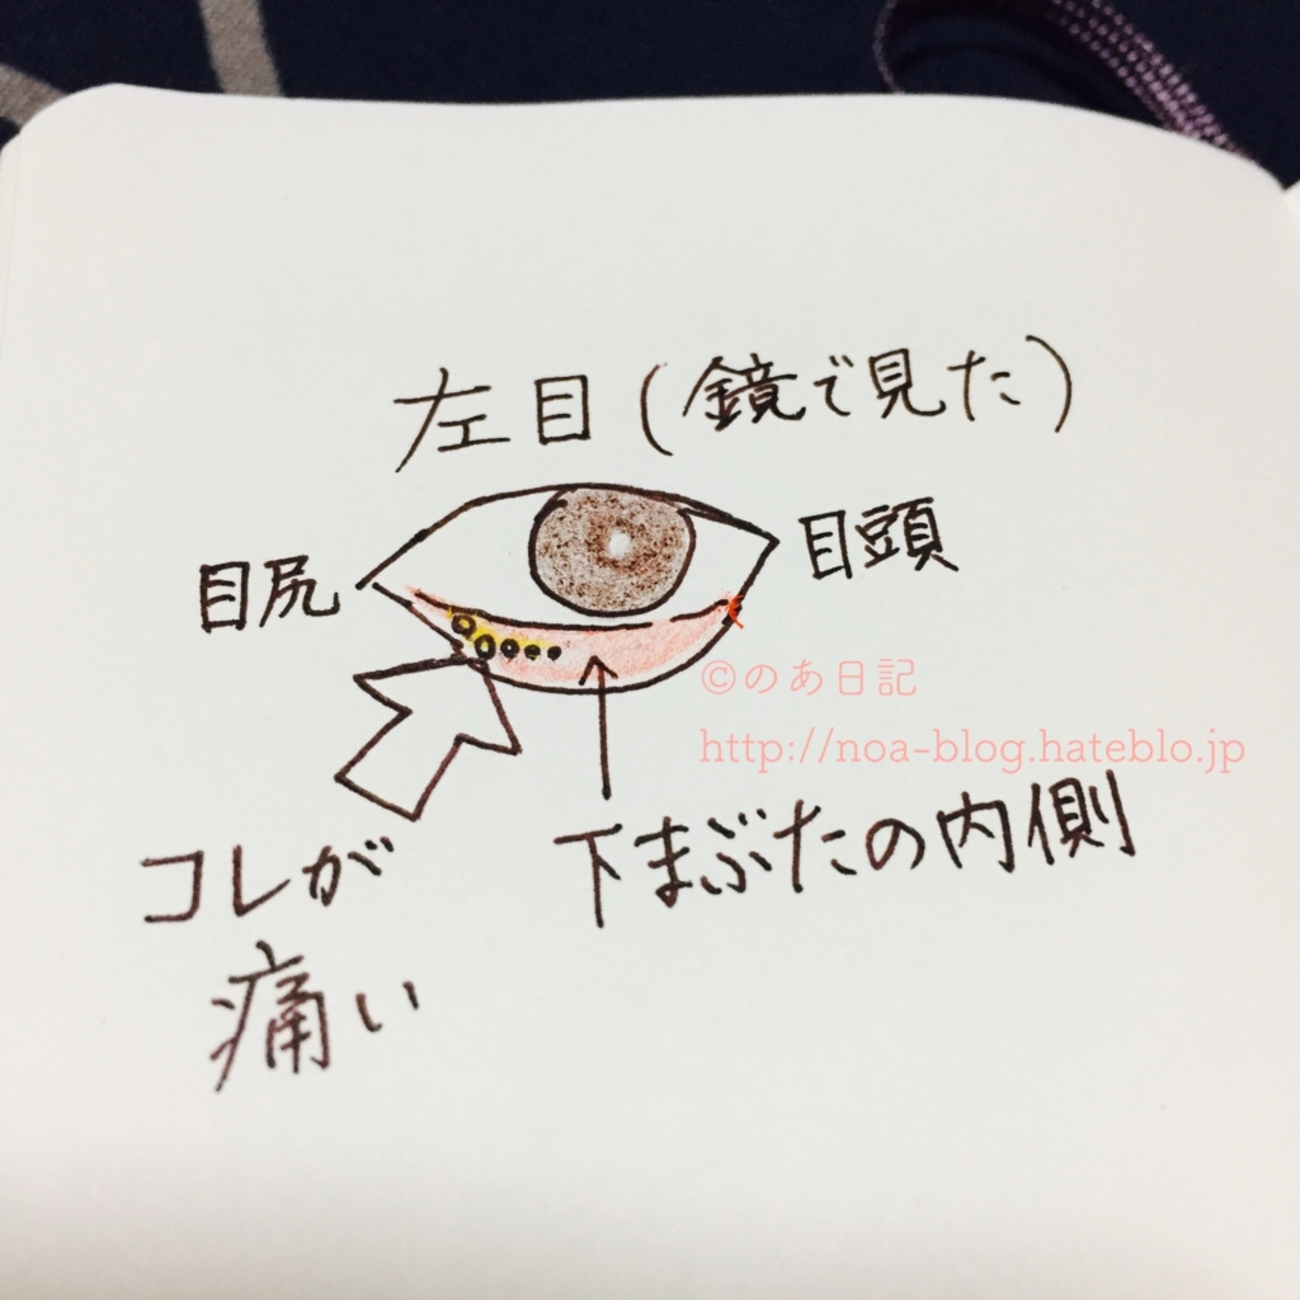 左目(鏡で見た)
目頭
目尻
©のあ日記
http://noa-blog.hateblo.jp
下まぶたの内側
コレが
痛い